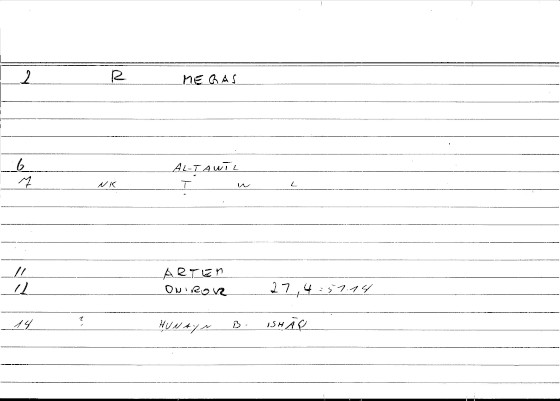 2 R MEGAS
6 AL-ṬAWĪL
7 NK Ṭ W L
11 ARTEM
12 ONIROKR 27,4:5114
14 ? ḤUNAYN B. ISḤĀQ